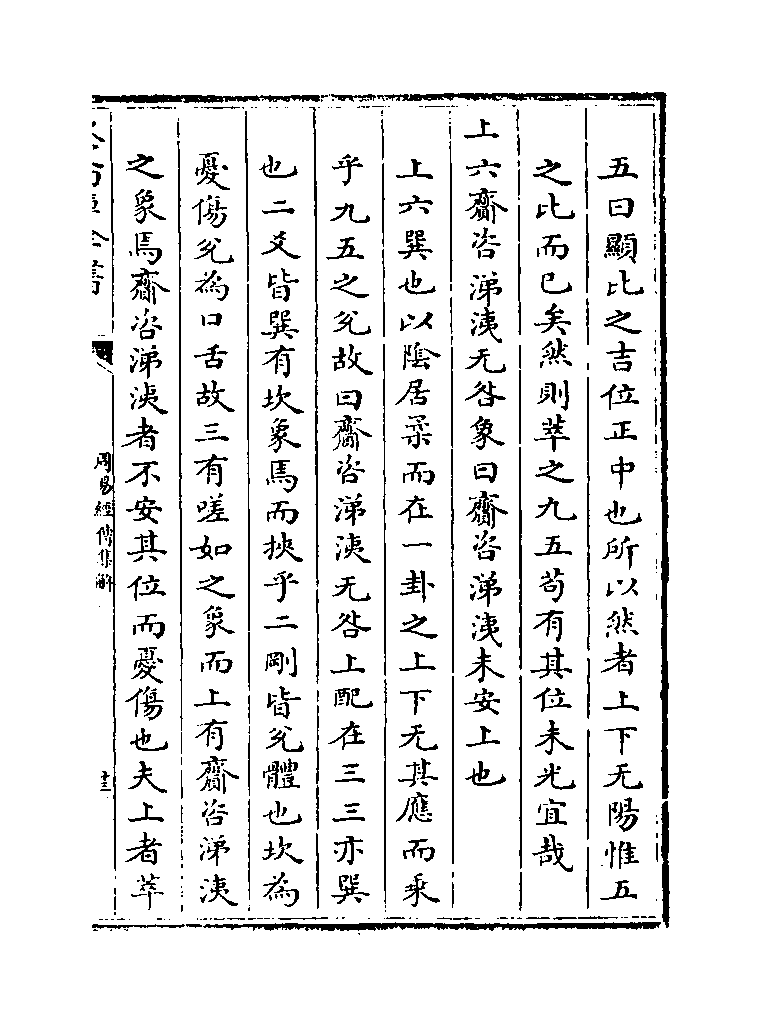 五曰顯比之吉位正中也所以然者上下无陽惟五
之比而已矣然則萃之九五苟有其位未光宜哉
上六齎咨涕洟无咎象曰齎咨涕洟未安上也
上六巽也以陰居柔而在一卦之上下无其應而乘
乎九五之兌故曰齎咨涕洟无咎上配在三三亦巽
也二爻皆巽有坎象焉而挾乎二剛皆兌體也坎為
憂傷兌為口舌故三有嗟如之象而上有齎咨涕洟
之象焉齎咨涕洟者不安其位而憂傷也夫上者萃
周易經傳集解
十三